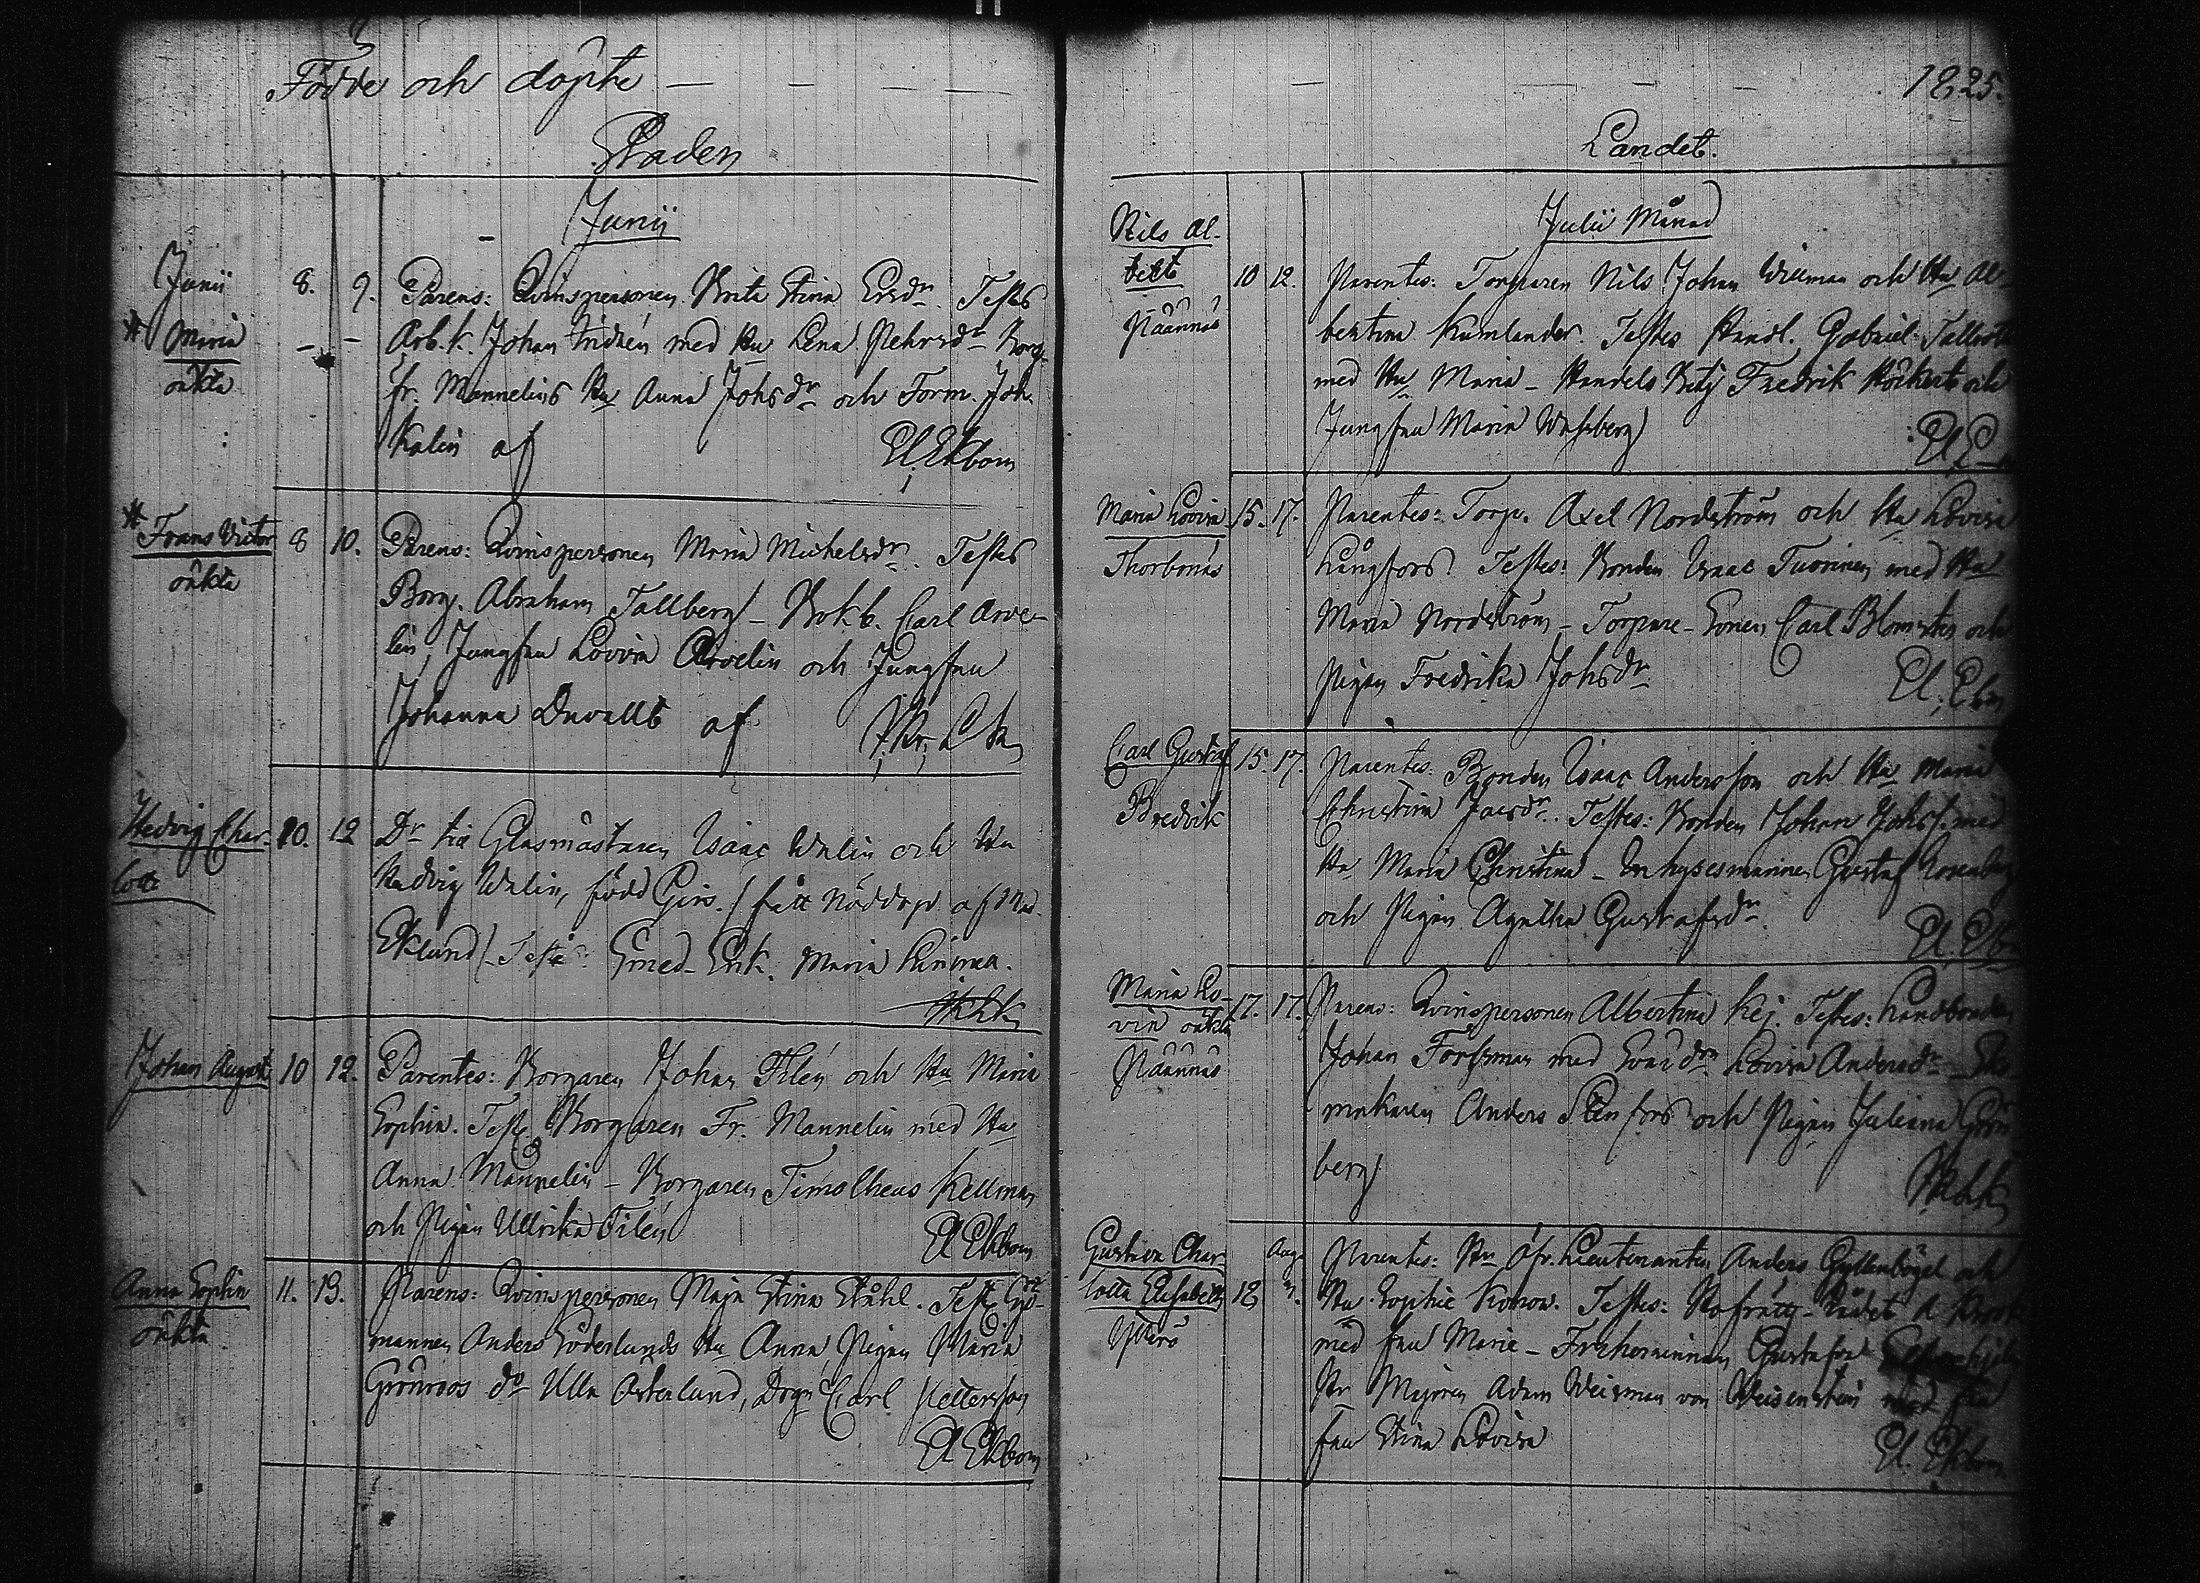 Födde och döpte
Staden
Junii
Junii
* Maria
oäkta
8. 9. Parens: Qvinspersonen Brita Stina Ersdr. Testes
Arb.k. Johan med Hu Lena Pehrsdr Borg.
fr. Mannelins Hu Anna Johsdr och Form. Joh.
Kalin af El. Ekbom
* Frans Victor
oäkta
8 10. Parens: Qvinspersonen Maria Michelsdr. Testes
Borg. Abraham Tallberg – Bokb. Carl Arve-
lin, Jungfru Lovisa Arvelin och Jungfru
Johanna Duvallt af
Hedvig Char-
lott
10. 12 Dr till Glasmästaren Isaac Walin och Hu
Hedvig Walin, född Girs. / fått nöddop af Mad.
Eklund / Testis: Smed-Enk. Maria
Johan August
10 12. Parentes: Borgaren Johan Filén och Hu Maria
Sophia. Testes Borgaren Fr. Mannelin med Hu
Anna Mannelin – Borgaren Timotheus Kellman
och Pigan Ullrika Filén
El Ekbom
Anna Sophia
oäkta
11. 13. Parens: Qvinspersonen Maja Stina Ståhl. Testes
mannen Anders Söderlunds Hu Anna, Pigan Maria
Grönroos do Ulla Österlund, Drgn Carl Pettersson
El Ekbom
1825.
Landet.
Julii Månad
Nils Al-
bert
Päännäs
10 12. Parentes: Torparen Nils Johan Willman och Hu Al-
bertina Kumlander. Testes Handl. Gabriel
med Hu Maria – Handels Betj Fredrik Höckert och
Jungfru Maria Wahlberg
El E
Maria Lovisa
Thorbonäs
15. 17. Parentes: Torp. Axel Nordström och Hu Lovisa
Långfors. Testes: Bonden Isaac Tuorinen med Hu
Maria Nordström – Torpare-Sonen Carl Blomster och
Pigan Fredrika Johsdr
El. Ebm
Carl Gustaf
Bredvik
15. 17. Parentes: Bonden Isaac Andersson och Hu Maria
Christina Jacsdr. Testes: Bonden Johan Johss. med
Hu Maria Christina – Inhysesmannen Gustaf Rosenberg
och Pigan Agatha Gustafsdr
El. Ebm
Maria Lo-
visa oäkta
Päännäs
17. 17. Parens: Qvinspersonen Albertina Kej. Testes: Landbonden
Johan Forssman med Svär dr Lovisa Andersdr – Sko
makaren Anders Stenfors och Pigan Juliana Grön
berg
Gustava Char-
lotta Elisabeth
12 Aug. Parentes: Hr Öfr. Lieutenanten Anders Gyllenbögel och
Hu Sophie Konow. Testes: Hofrätts-Rådet
med fru Marie – Friherrinnan Gustafva
Hr Majoren Adam Weisman von Weisenstein med
fru Stina Lovisa
El. Ekbom